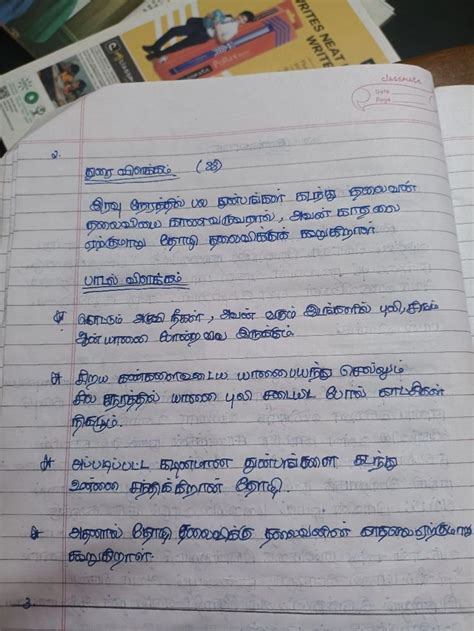 WRITES NEAT
WRITE
classmate
Date
Page
2.
துறை விளக்கம்
இரவு நேரத்தில் பல துன்பங்கள் கடந்து தலைவன்
தலைவியை காணவருவதால், அவன் காதலை
ஏற்குமாறு தோழி தலைவிக்குக் கூறுகிறாள்
பாடல் விளக்கம்
அவன் வரும் இடங்களில் புலி, சிங்கம்
ஆண்யானை போன்றவை இருக்கும்
சிறிய கண்களையுடைய யானை செல்லும்
சில நேரத்தில் யானை புலி சண்டை போல் காட்சிகள்
நிகழும்.
அப்படிப்பட்ட கடினமான துன்பங்களை கடந்து
உன்னை சந்திக்கிறான் தோழி.
அதனால் தோழி தலைவிக்கு தலைவனின் காதலை ஏற்குமாறு
கூறுகிறாள்.
3.